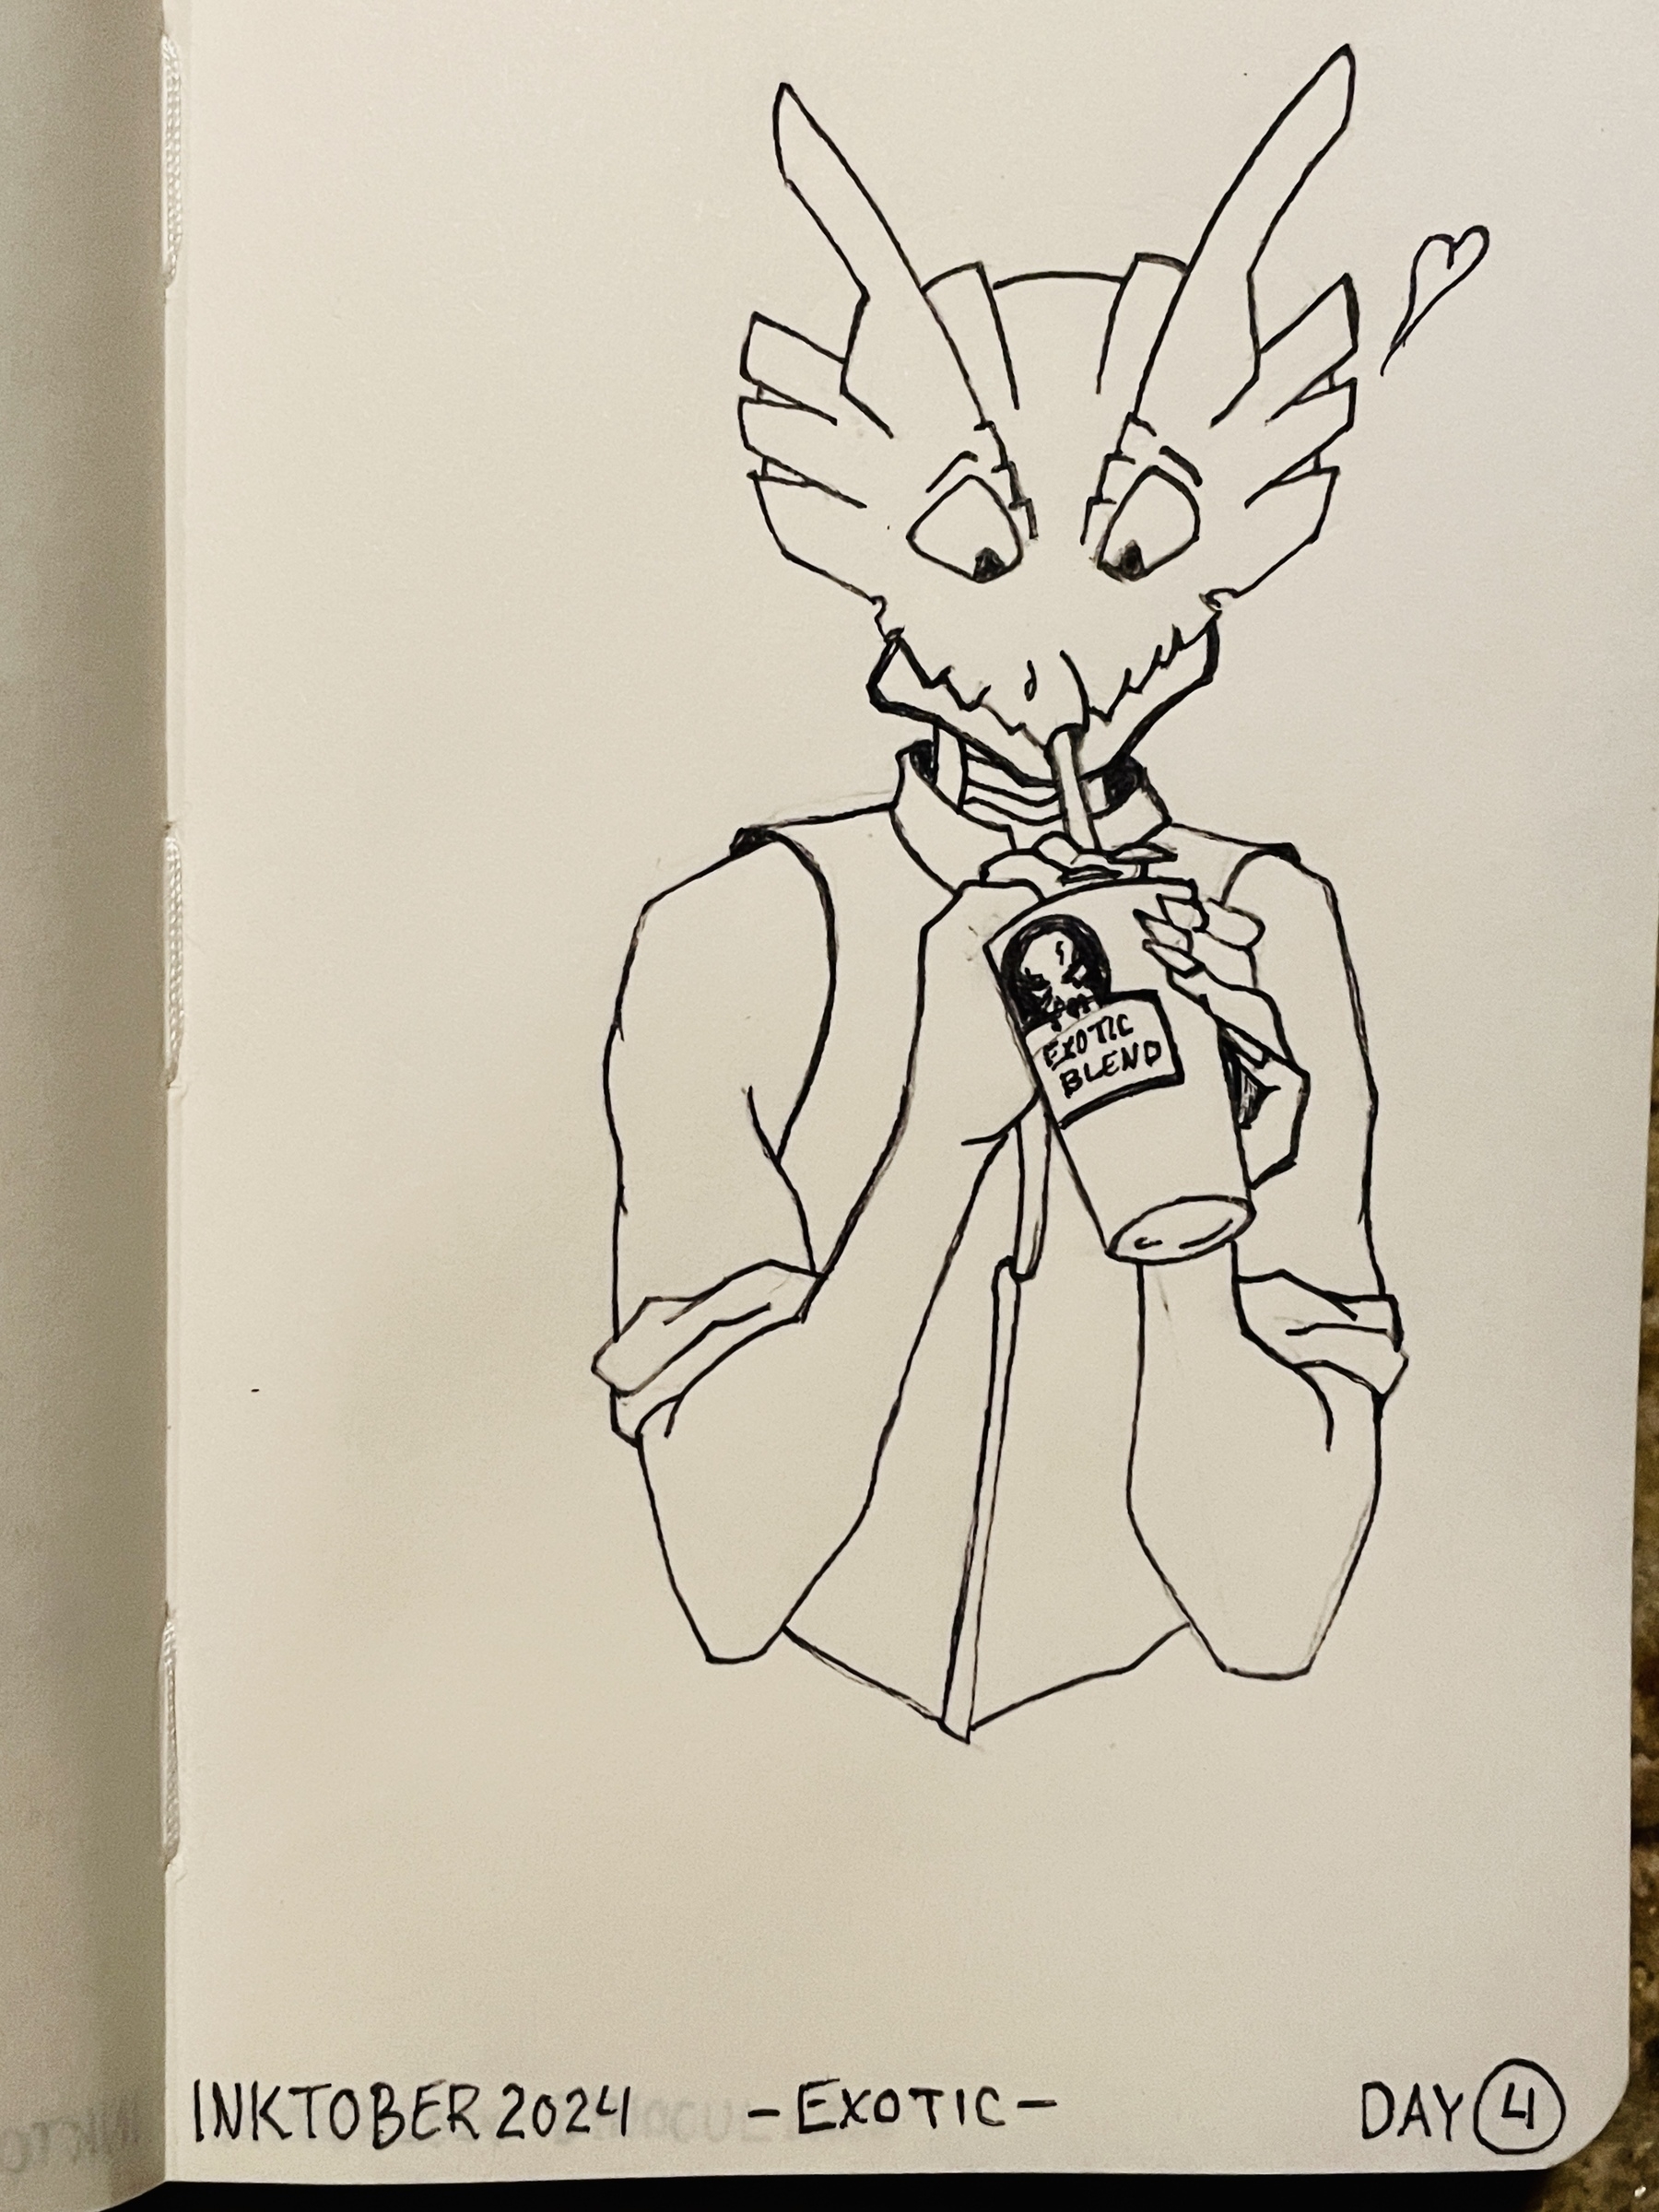 EXOTIC
BLEND
INKTOBER 2024 -EXOTIC- DAY 4